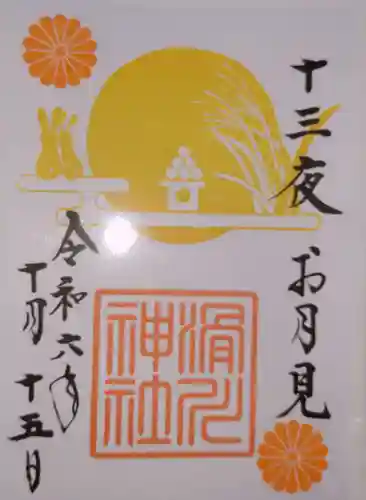 十三夜 お月見
令和六年
十月十五日
滑川
神社